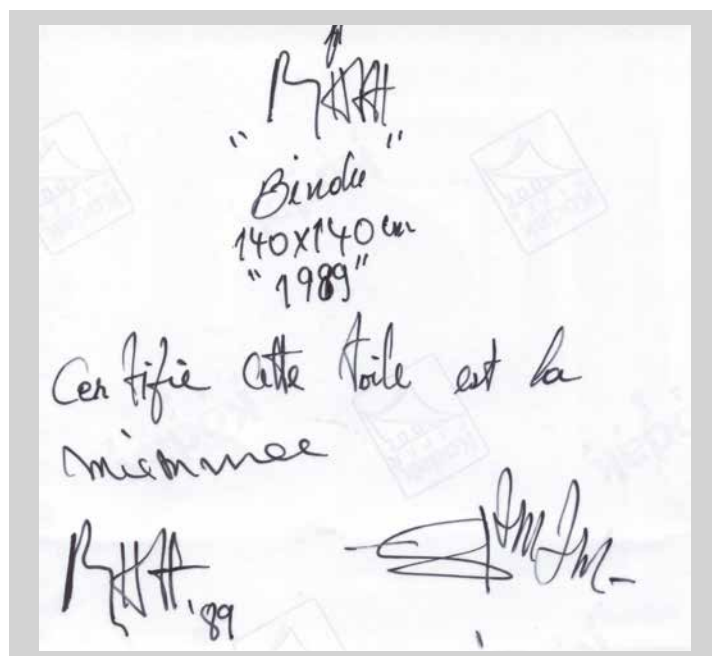 " "
Bindu
140x140 cm
"1989"
Certifie cette toile est la
miemmee
'89